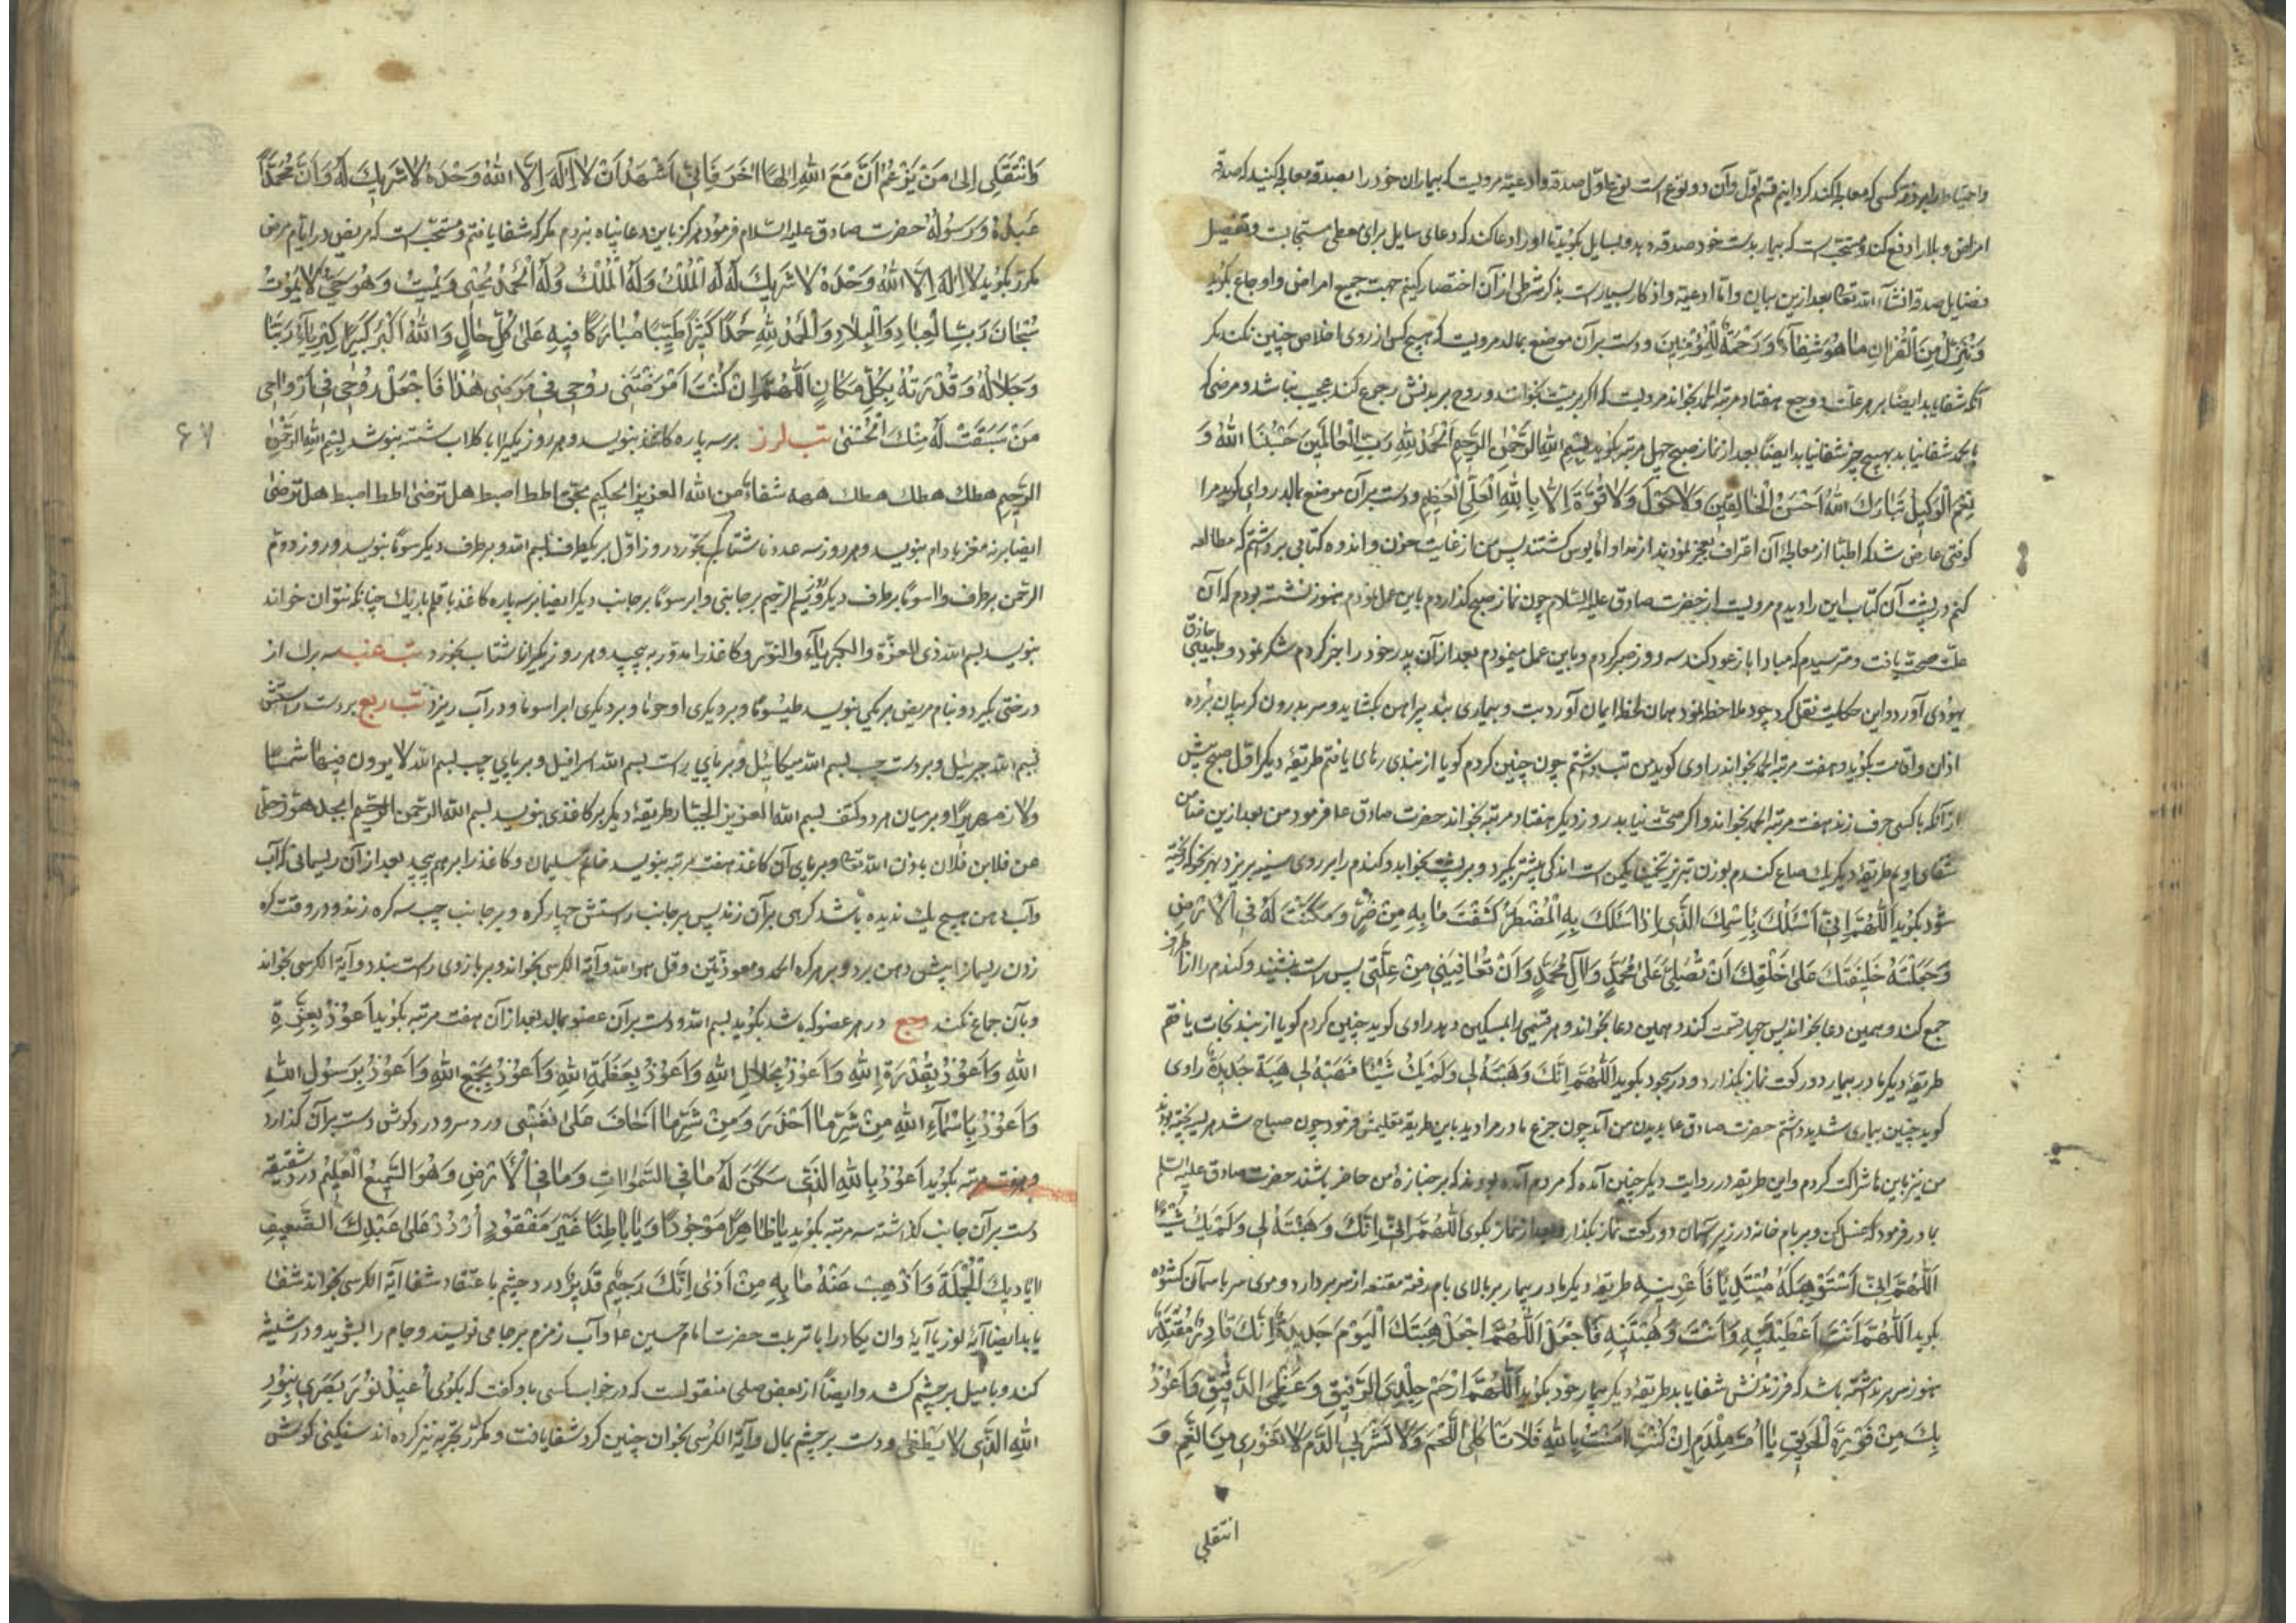 واحتیاط را بر ذمه کسی که معالجه کند کرد اینم قسم اول و آن دو نوع است نوع اول صدقه و ادعیه مرویست که بیماران خود را بصدقه معالجه کنید که صدقه
امراض و بلا را دفع کند و مستحب است که بیمار بدست خود صدقه دهد و بسایل بگوید تا او را دعا کند که دعای سایل برای معطی مستجابست و تفصیل
فضایل صدقه انشاء الله تعالی بعد ازین بیان و اما ادعیه و اذکار بسیار است بذکر شرطی از آن اختصار کنیم جهت جمیع امراض و اوجاع بگوید
وَنُنَزِّلُ مِنَ الْقُرْآنِ مَا هُوَ شِفَاءٌ وَرَحْمَةٌ لِلْمُؤْمِنِینَ و دست بر آن موضع بمالد مرویست که هیچ کس از روی اخلاص چنین نکند مگر
آنکه شفا یابد ایضا بر هر علت و وجع هفتاد مرتبه الحمد بخواند مرویست که اگر بر میت بخوانند و روح بر بدنش رجوع کند عجب نباشد و مرضی که
بالحمد شفا نیابد بهیچ چیز شفا نیابد ایضاً بعد از نماز صبح چهل مرتبه بگوید بِسْمِ اللهِ الرَّحْمنِ الرَّحِیمِ اَلْحَمْدُ لِلّهِ رَبِّ الْعَالَمِینَ حَسْبُنَا اللهُ وَ
نِعْمَ الْوَکِیلُ تَبَارَكَ اللهُ اَحْسَنُ الْخَالِقِینَ وَلَا حَوْلَ وَلَا قُوَّةَ اِلَّا بِاللهِ الْعَلِیِّ الْعَظِیمِ و دست بر آن موضع بمالد راوی گوید مرا
کوفتی عارض شد که اطبا از معالجه آن اعتراف بعجز نمودند از مداوا مأیوس گشتند پس من از غایت حزن و اندوه کتابی برداشتم که مطالعه
کنم در پشت آن کتاب این را دیدم مرویست از حضرت صادق علیه السلام چون نماز صبح گذاردم باین عمل نمودم هنوز ننشسته بودم که آن
علت صحت یافت و مترسیدم که مبادا باز عود کند سه روز صبر کردم و باین عمل مینمودم بعد از آن پدر خود را خبر کردم شکر نمود و طبیبی حاذق
یهودی آورد و این حکایت نقل کرد چون ملاحظه نمود همان لحظه ایمان آورد تب و بیماری بند پیراهن بگشاید و سر بدرون گریبان برده
اذان و اقامت بگوید و هفت مرتبه الحمد بخواند راوی گوید من تب داشتم چون چنین کردم گویا از بندی رهائی یافتم طریقه دیگر اول صبح پیش
از آنکه با کسی حرف زند هفت مرتبه الحمد بخواند و اگر صحت نیابد روز دیگر هفتاد مرتبه بخواند حضرت صادق ع فرمود من بعد ازین ضامن
شفای اویم طریقه دیگر یك صاع گندم بوزن تبریز تخمیناً یکمن است اندکی بیشتر بگیرد و بر پشت بخوابد و گندم را بر روی سینه بریزد بهر نحو که ریخته
شود بگوید اَللّهُمَّ اِنِّی اَسْئَلُكَ بِاسْمِكَ الَّذِی اِذَا سَئَلَكَ بِهِ الْمُضْطَرُّ کَشَفْتَ مَا بِهِ مِنْ ضُرٍّ وَمَکَّنْتَ لَهُ فِی الْاَرْضِ
وَجَعَلْتَهُ خَلِیفَتَكَ عَلَی خَلْقِكَ اَنْ تُصَلِّیَ عَلَی مُحَمَّدٍ وَآلِ مُحَمَّدٍ وَاَنْ تُعَافِیَنِی مِنْ عِلَّتِی پس راست بنشیند و گندم را از اطراف
جمع کند و همین دعا بخواند پس چهار قسمت کند و همین دعا بخواند و هر قسمی را بمسکین دهد راوی گوید چنین کردم گویا از بند نجات یافتم
طریقه دیگر مادر بیمار دو رکعت نماز بگذارد و در سجود بگوید اَللّهُمَّ اِنَّكَ وَهَبْتَهُ لِی وَلَمْ یَكُ شَیْئًا فَهَبْهُ لِی هِبَةً جَدِیدَةً راوی
گوید چنین بیماری شدید داشتم حضرت صادق ع بدیدن من آمد چون جزع مادرم را دید باین طریقه تعلیمش فرمود چون صباح شد
من نیز با این ها شراکت کردم و این طریقه در روایت دیگر چنین آمده که مردم آمده بودند که بر جنازه من حاضر باشند حضرت صادق علیه السلم
بمادر فرمود که غسل کن و بر بام خانه در زیر آسمان دو رکعت نماز بگذار و بعد از نماز بگوی اَللّهُمَّ اِنَّكَ وَهَبْتَهُ لِی وَلَمْ یَكُ شَیْئًا
اَللّهُمَّ اِنِّی اَسْتَوْهِبُکَهُ مُبْتَدِیًا فَاَعِرْنِیهِ طریقه دیگر مادر بیمار بر بالای بام رفته مقنعه از سر بردارد و موی سر باسمان گشوده
بگوید اَللّهُمَّ اَنْتَ اَعْطَیْتَنِیهِ وَاَنْتَ وَهَبْتَنِیهِ فَاجْعَلْ اَللّهُمَّ اجْعَلْ هِبَتَكَ الْیَوْمَ جَدِیدَةً اِنَّكَ قَادِرٌ مُقْتَدِرٌ
هنوز سر برنداشته باشد که فرزندش شفا یابد طریقه دیگر بیمار خود بگوید اَللّهُمَّ ارْحَمْ جِلْدِیَ الرَّقِیقَ وَعَظْمِیَ الدَّقِیقَ وَاَعُوذُ
بِكَ مِنْ فَوْرَةِ الْحَرِیقِ یَا اُمَّ مِلْدَمٍ اِنْ کُنْتِ آمَنْتِ بِاللهِ فَلَا تَأْکُلِی اللَّحْمَ وَلَا تَشْرَبِی الدَّمَ لَا تَفُورِی مِنَ الْفَمِ وَ
انتقلی
وَانْتَقِلِی اِلَی مَنْ یَزْعُمُ اَنَّ مَعَ اللهِ اِلهًا آخَرَ فَاِنِّی اَشْهَدُ اَنْ لَا اِلهَ اِلَّا اللهُ وَحْدَهُ لَا شَرِیكَ لَهُ وَاَنَّ مُحَمَّدًا
عَبْدُهُ وَرَسُولُهُ حضرت صادق علیه السلام فرمود هرگز باین دعا پناه نبردم مگر که شفا یافتم و مستحب است که مریض در ایام مرض
مکرر بگوید لَا اِلهَ اِلَّا اللهُ وَحْدَهُ لَا شَرِیكَ لَهُ لَهُ الْمُلْكُ وَلَهُ الْمُلْكُ وَلَهُ الْحَمْدُ یُحْیِی وَیُمِیتُ وَهُوَ حَیٌّ لَا یَمُوتُ
سُبْحَانَ رَبِّ الْعِبَادِ وَالْبِلَادِ وَالْحَمْدُ لِلّهِ حَمْدًا کَثِیرًا طَیِّبًا مُبَارَکًا فِیهِ عَلَی کُلِّ حَالٍ وَاللهُ اَکْبَرُ کَبِیرًا کِبْرِیَاءُ رَبِّنَا
وَجَلَالُهُ وَقُدْرَتُهُ بِکُلِّ مَکَانٍ اَللّهُمَّ اِنْ کُنْتَ اَمْرَضْتَنِی رُوحِی فِی مَرَضِی هذَا فَاجْعَلْ رُوحِی فِی اَرْوَاحِ
۶۷
مَنْ سَبَقَتْ لَهُ مِنْكَ الْحُسْنَی تب لرز بر سه پاره کاغذ بنویسد و هر روز یکی را با گلاب شسته بنوشد بِسْمِ اللهِ الرَّحْمنِ
الرَّحِیمِ هطك هطك هطك ههه شفاءً من الله العزیز الحکیم بحق اطط اصبط هل ترضی اطط اصبط هل ترضی
ایضا بر نه مغز بادام بنویسد و هر روز سه عدد ناشتا بخورد روز اول بر یکطرف بسم الله و بر طرف دیگر سوما بنویسد و روز دوم
الرحمن بر طرف و اسوما بر طرف دیگر روز سیم الرحیم بر جانبی و ابر سوما بر جانب دیگر ایضا بر سه پاره کاغذ با قلم باریك چنانکه نتوان خواند
بنویسد بسم الله ذی العزة والکبریاء والنور و کاغذ را مدور به پیچد و هر روز یکی را ناشتا بخورد تب غب سه برك از
درختی بگیرد و بنام مریض بر یکی بنویسد طیسوما و بر دیگری اوحوما و بر دیگری ابراسوما و در آب ریزد تب ربع بر دست راستش
بسم الله جبرئیل و بر دست چپ بسم الله میکائیل و بر پای راست بسم الله اسرافیل و بر پای چپ بسم الله لا یرون فیها شمسًا
ولا زمهریرًا و بر میان هر دو کتف بسم الله العزیز الجبار طریقه دیگر بر کاغذی بنویسد بسم الله الرحمن الرحیم ابجد هوز حطی
عن فلان بن فلان باذن الله تعالی و بر پای آن کاغذ هفت مرتبه بنویسد خاتم سلیمان و کاغذ را بر هم پیچد بعد از آن ریسمانی که آب
و آب دهن هیچ یك ندیده باشد گرهی بر آن زند پس بر جانب راستش چهار گره و بر جانب چپ سه گره زند و در وقت گره
زدن ریسمان را پیش دهن برد و بر هر گره الحمد و معوذتین و قل هو الله و آیة الکرسی بخواند و بر بازوی راست بندد و آیة الکرسی بخواند
و بآن جماع نکند وجع در هر عضو که باشد بگوید بسم الله و دست بر آن عضو بمالد بعد از آن هفت مرتبه بگوید اَعُوذُ بِعِزَّةِ
اللهِ وَاَعُوذُ بِقُدْرَةِ اللهِ وَاَعُوذُ بِجَلَالِ اللهِ وَاَعُوذُ بِعَظَمَةِ اللهِ وَاَعُوذُ بِجَمْعِ اللهِ وَاَعُوذُ بِرَسُولِ اللهِ
وَاَعُوذُ بِاَسْمَاءِ اللهِ مِنْ شَرِّ مَا اَحْذَرُ وَمِنْ شَرِّ مَا اَخَافُ عَلَی نَفْسِی و درد سر و درد گوش دست بر آن گذارد
و هفت مرتبه بگوید اَعُوذُ بِاللهِ الَّذِی سَکَنَ لَهُ مَا فِی السَّموَاتِ وَمَا فِی الْاَرْضِ وَهُوَ السَّمِیعُ الْعَلِیمُ درد شقیقه
دست بر آن جانب گذاشته سه مرتبه بگوید یَا ظَاهِرًا مَوْجُودًا وَیَا بَاطِنًا غَیْرَ مَفْقُودٍ اُرْدُدْ عَلَی عَبْدِكَ الضَّعِیفِ
اَیَادِیكَ الْجَمِیلَةَ وَاَذْهِبْ عَنْهُ مَا بِهِ مِنْ اَذًی اِنَّكَ رَحِیمٌ قَدِیرٌ درد چشم باعتقاد شفا آیة الکرسی بخواند شفا
یابد ایضا آیه نور یا آیه وان یکاد را با تربت حضرت امام حسین ع و آب زمزم بر جامی نویسند و جام را بشوید و در شیشه
کند و با میل بر چشم کشد و ایضاً از بعض صلحا منقولست که در خواب کسی باو گفت که بگوی اُعِیذُ نُورَ بَصَرِی بِنُورِ
اللهِ الَّذِی لَا یُطْفَی و دست بر چشم بمال و آیة الکرسی بخوان چنین کرد شفا یافت و مکرر تجربه نیز کرده اند سنگینی گوش